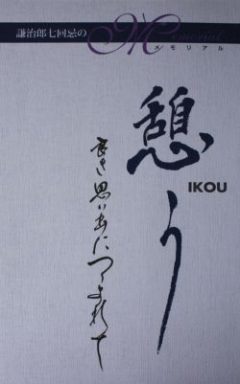 七回忌の
Memorial
メモリアル
憩う
IKOU
良き思い出につつまれて